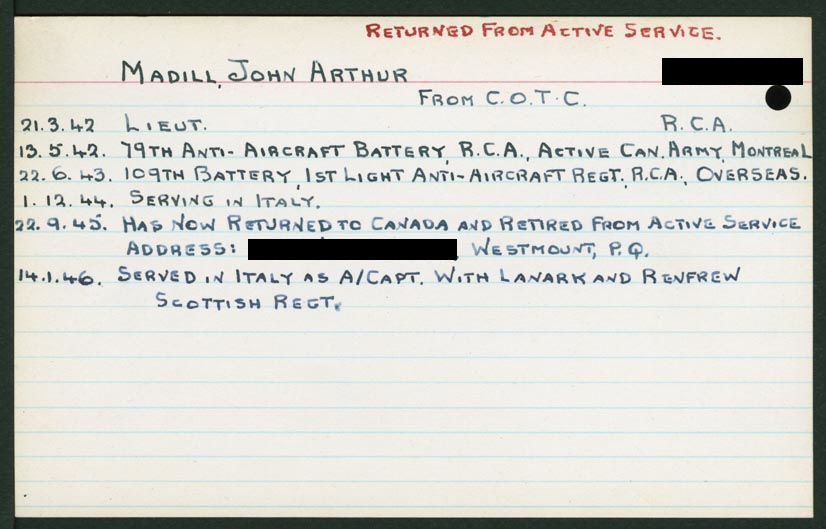 RETURNED FROM ACTIVE SERVICE.
MADILL, JOHN ARTHUR
FROM C.O.T.C.
21.3.42 LIEUT. R.C.A.
13.5.42. 79TH ANTI-AIRCRAFT BATTERY, R.C.A., ACTIVE CAN. ARMY, MONTREAL
22.6.43. 109TH BATTERY, 1ST LIGHT ANTI-AIRCRAFT REGT. R.C.A., OVERSEAS.
1.12.44. SERVING IN ITALY.
22.9.45. HAS NOW RETURNED TO CANADA AND RETIRED FROM ACTIVE SERVICE
ADDRESS: , WESTMOUNT, P.Q.
14.1.46. SERVED IN ITALY AS A/CAPT. WITH LANARK AND RENFREW
SCOTTISH REGT.